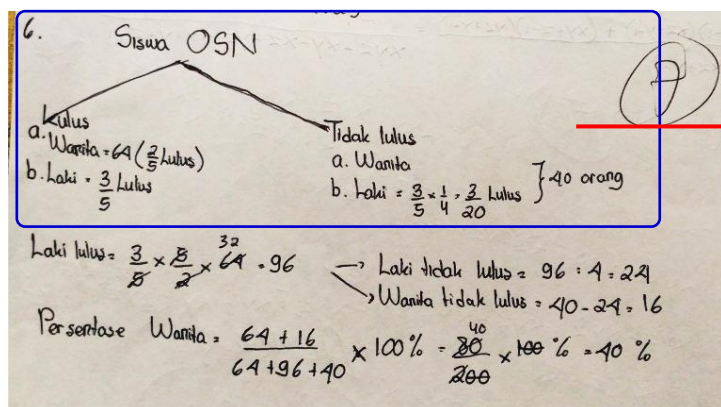 6.
Siswa OSN
Lulus
a. Wanita = 64 (2/5 Lulus)
b. Laki = 3/5 Lulus
Tidak lulus
a. Wanita
b. Laki = 3/5 × 1/4 = 3/20 Lulus
} 40 orang
Laki lulus = 3/5 × 5/2 × 64 = 96
32
→ Laki tidak lulus = 96 : 4 = 24
→ Wanita tidak lulus = 40 - 24 = 16
Persentase Wanita = 64 + 16 / 64 + 96 + 40 × 100 % = 80/200 × 100 % = 40 %
40